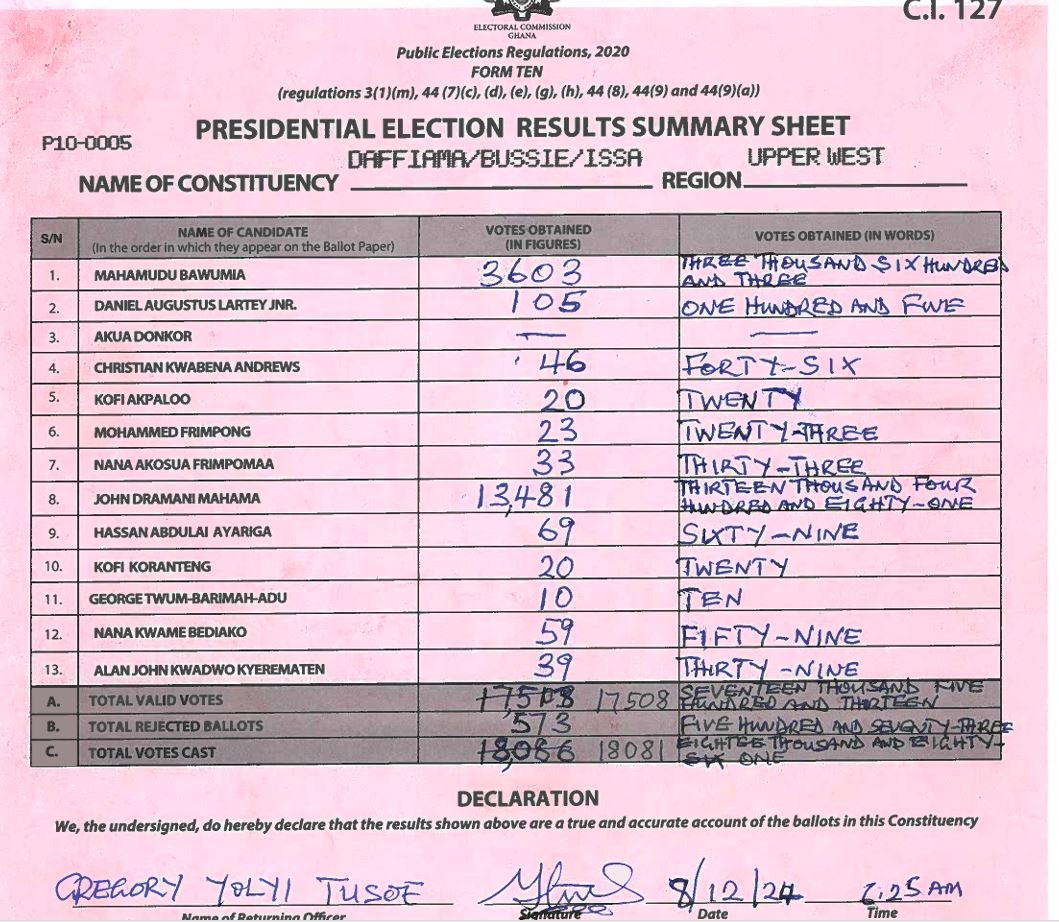 C.I. 127
ELECTORAL COMMISSION
GHANA
Public Elections Regulations, 2020
FORM TEN
(regulations 3(1)(m), 44 (7)(c), (d), (e), (g), (h), 44 (8), 44(9) and 44(9)(a))
P10-0005
PRESIDENTIAL ELECTION RESULTS SUMMARY SHEET
NAME OF CONSTITUENCY DAFFIAMA/BUSSIE/ISSA REGION UPPER WEST
S/N NAME OF CANDIDATE (In the order in which they appear on the Ballot Paper) VOTES OBTAINED (IN FIGURES) VOTES OBTAINED (IN WORDS)
1. MAHAMUDU BAWUMIA 3603 THREE THOUSAND SIX HUNDRED AND THREE
2. DANIEL AUGUSTUS LARTEY JNR. 105 ONE HUNDRED AND FIVE
3. AKUA DONKOR — —
4. CHRISTIAN KWABENA ANDREWS 46 FORTY-SIX
5. KOFI AKPALOO 20 TWENTY
6. MOHAMMED FRIMPONG 23 TWENTY-THREE
7. NANA AKOSUA FRIMPOMAA 33 THIRTY-THREE
8. JOHN DRAMANI MAHAMA 13,481 THIRTEEN THOUSAND FOUR HUNDRED AND EIGHTY-ONE
9. HASSAN ABDULAI AYARIGA 69 SIXTY-NINE
10. KOFI KORANTENG 20 TWENTY
11. GEORGE TWUM-BARIMAH-ADU 10 TEN
12. NANA KWAME BEDIAKO 59 FIFTY-NINE
13. ALAN JOHN KWADWO KYEREMATEN 39 THIRTY-NINE
A. TOTAL VALID VOTES 17508 SEVENTEEN THOUSAND FIVE HUNDRED AND THIRTEEN
B. TOTAL REJECTED BALLOTS 573 FIVE HUNDRED AND SEVENTY-THREE
C. TOTAL VOTES CAST 18,086 18081 EIGHTEE THOUSAND AND EIGHTY-SIX ONE
DECLARATION
We, the undersigned, do hereby declare that the results shown above are a true and accurate account of the ballots in this Constituency
GREGORY YOLYI TUSOE 8/12/24 2:25 AM
Name of Returning Officer Signature Date Time